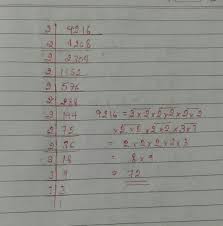 2 9216
2 4608
2 2304
2 1152
2 576
2 288
2 144 9216 = 2×2×2×2×2×2
2 72 ×2×2×2×2×3×3
2 36 = 2×2×2×2×3
18 = 8×9
3 9 = 72
3 3
1